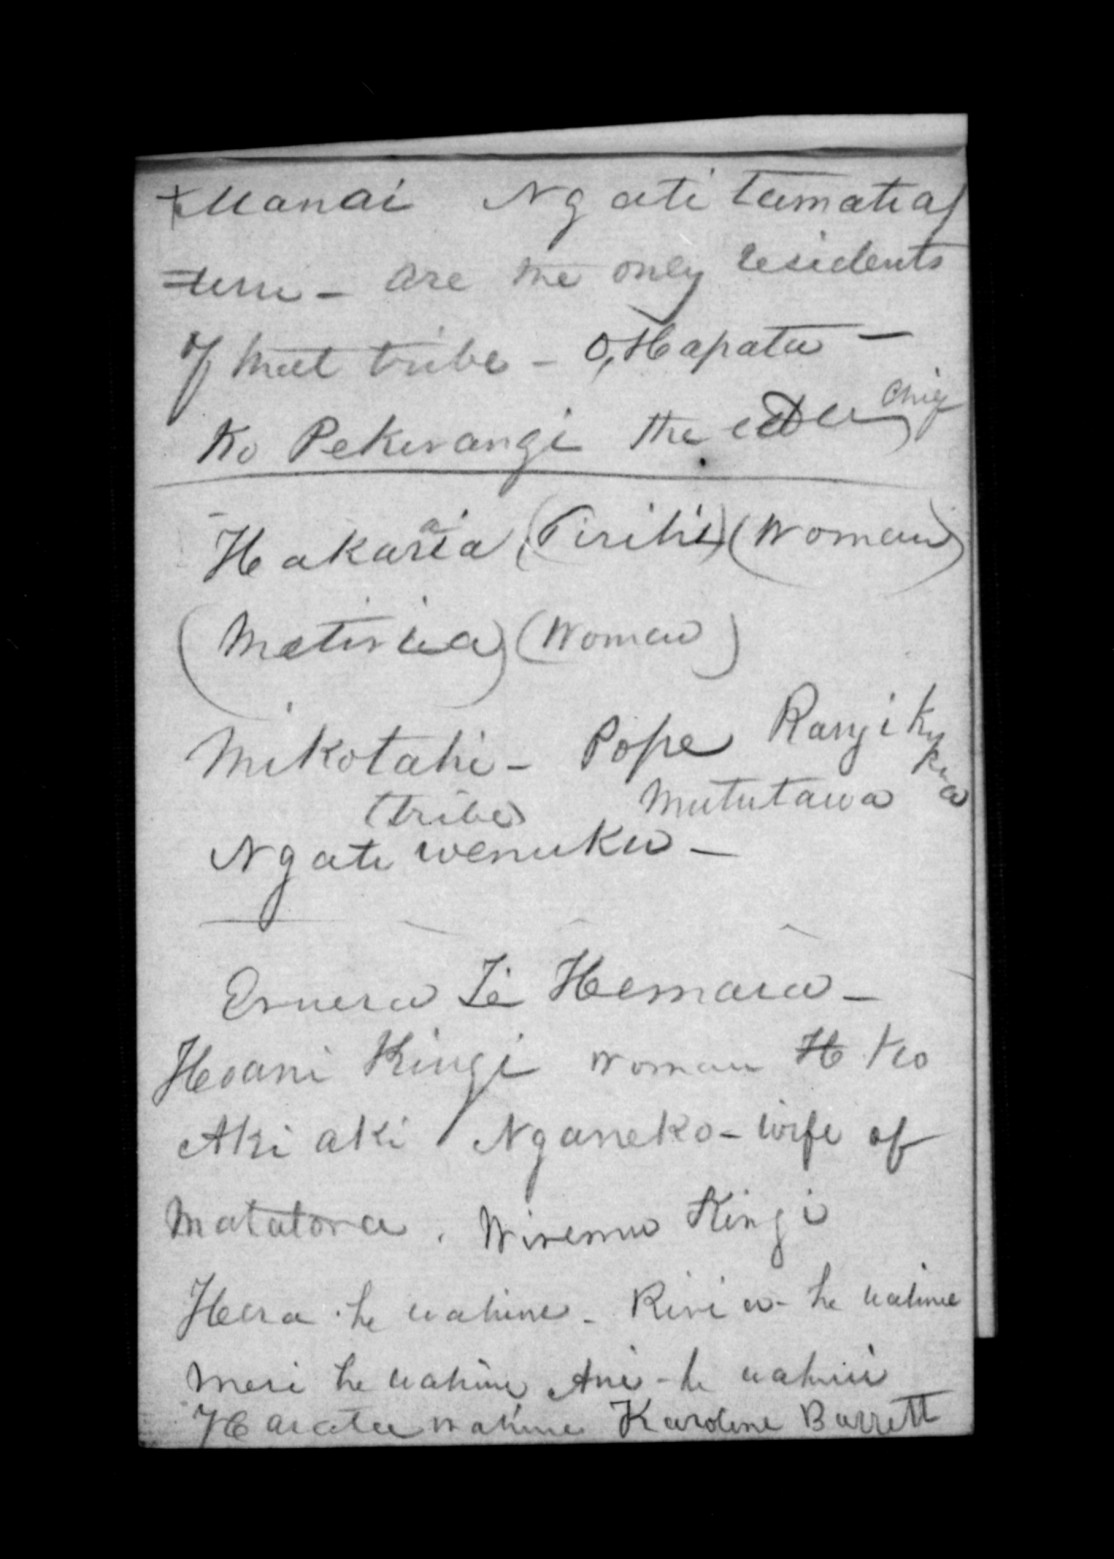 Manai Ngati tumatia/
=teru - are the only residents
of that tribe - O, Hapatu -
Ko Pekerangi the chief
Hakaria (Tirihi) (Woman)
(Matiria) (Woman)
Mikotahi - Pope Rangi
(tribe) Mututawa
Ngati wenuku -
Eruera Te Hemara -
Hoani Kingi woman H Ko
Aki aki Nganeko - wife of
Matatora. Wiremu Kingi
Hera he wahine - Riria - he wahine
Meri he wahine Ani - he wahine
Harata wahine Karoline Barrett